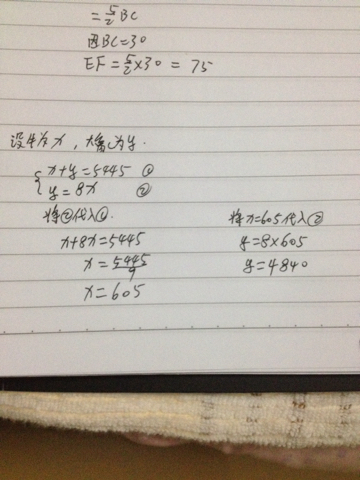 = 5/2 BC
因BC=30
EF = 5/2 × 30 = 75
设牛为x, 为y.
{ x+y=5445 ①
y=8x ②
将②代入①.
x+8x=5445
x= 5445/9
x=605
将x=605代入②
y=8×605
y=4840